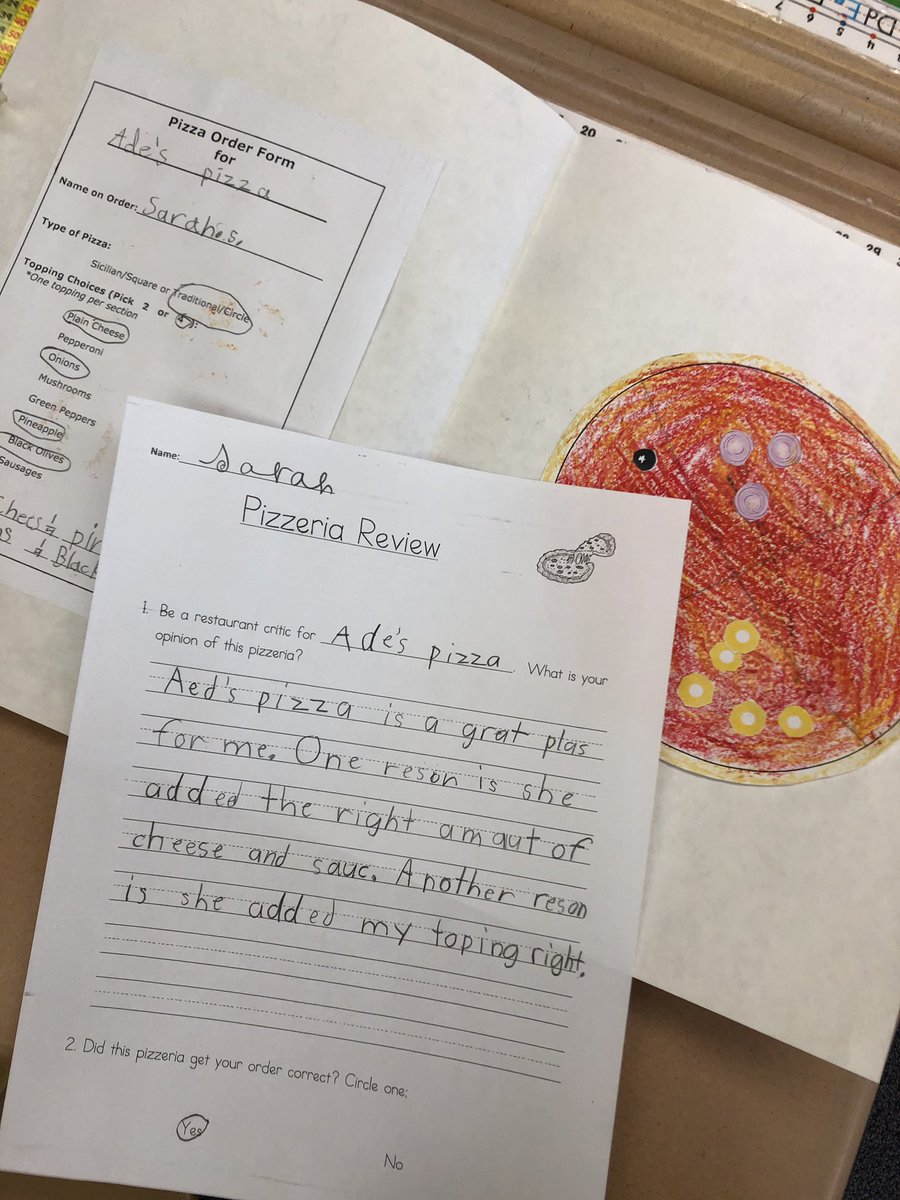 Pizza Order Form
for
Ade's
pizza
Name on Order: Sarah.s.
Type of Pizza:
Sicilian/Square or Traditional/Circle
Topping Choices (Pick 2 or 4):
*One topping per section
Plain Cheese
Pepperoni
Onions
Mushrooms
Green Peppers
Pineapple
Black Olives
Sausages
Name: Sarah
Pizzeria Review
1. Be a restaurant critic for Ade's pizza. What is your
opinion of this pizzeria?
Aed's pizza is a grat plas
for me. One reson is she
added the right amaut of
cheese and sauc. Another reson
is she added my toping right.
2. Did this pizzeria get your order correct? Circle one:
Yes
No
20
29
4
5
6
7